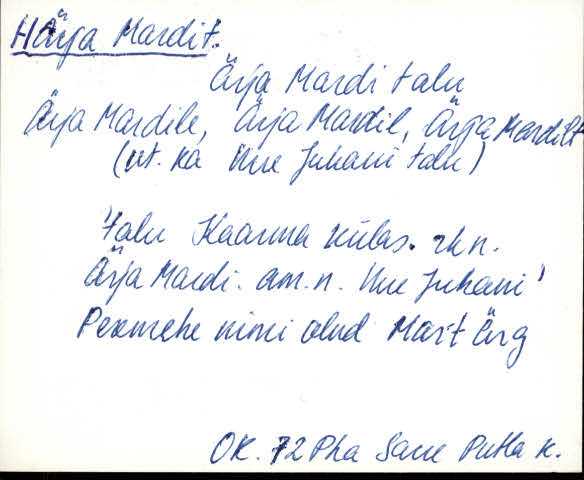 Härja Mardi t.
Ärja Mardi talu
Ärja Mardile, Ärja Mardil, Ärja Mardilt
(vt. ka Uue Juhani talu)
Talu Kaarma külas. rkn.
Ärja Mardi. am.n. Uue Juhani'
Peremehe nimi olud Mart Ärg
OK. 72 Pha Saue Putla k.